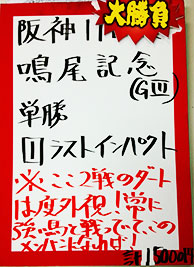 大勝負
阪神11R
鳴尾記念
(GⅢ)
単勝
1 ラストインパクト
※ここ2戦のダート
は度外視!常に
強い馬と戦ってきてこの
メンバーなれば!
計1,500円